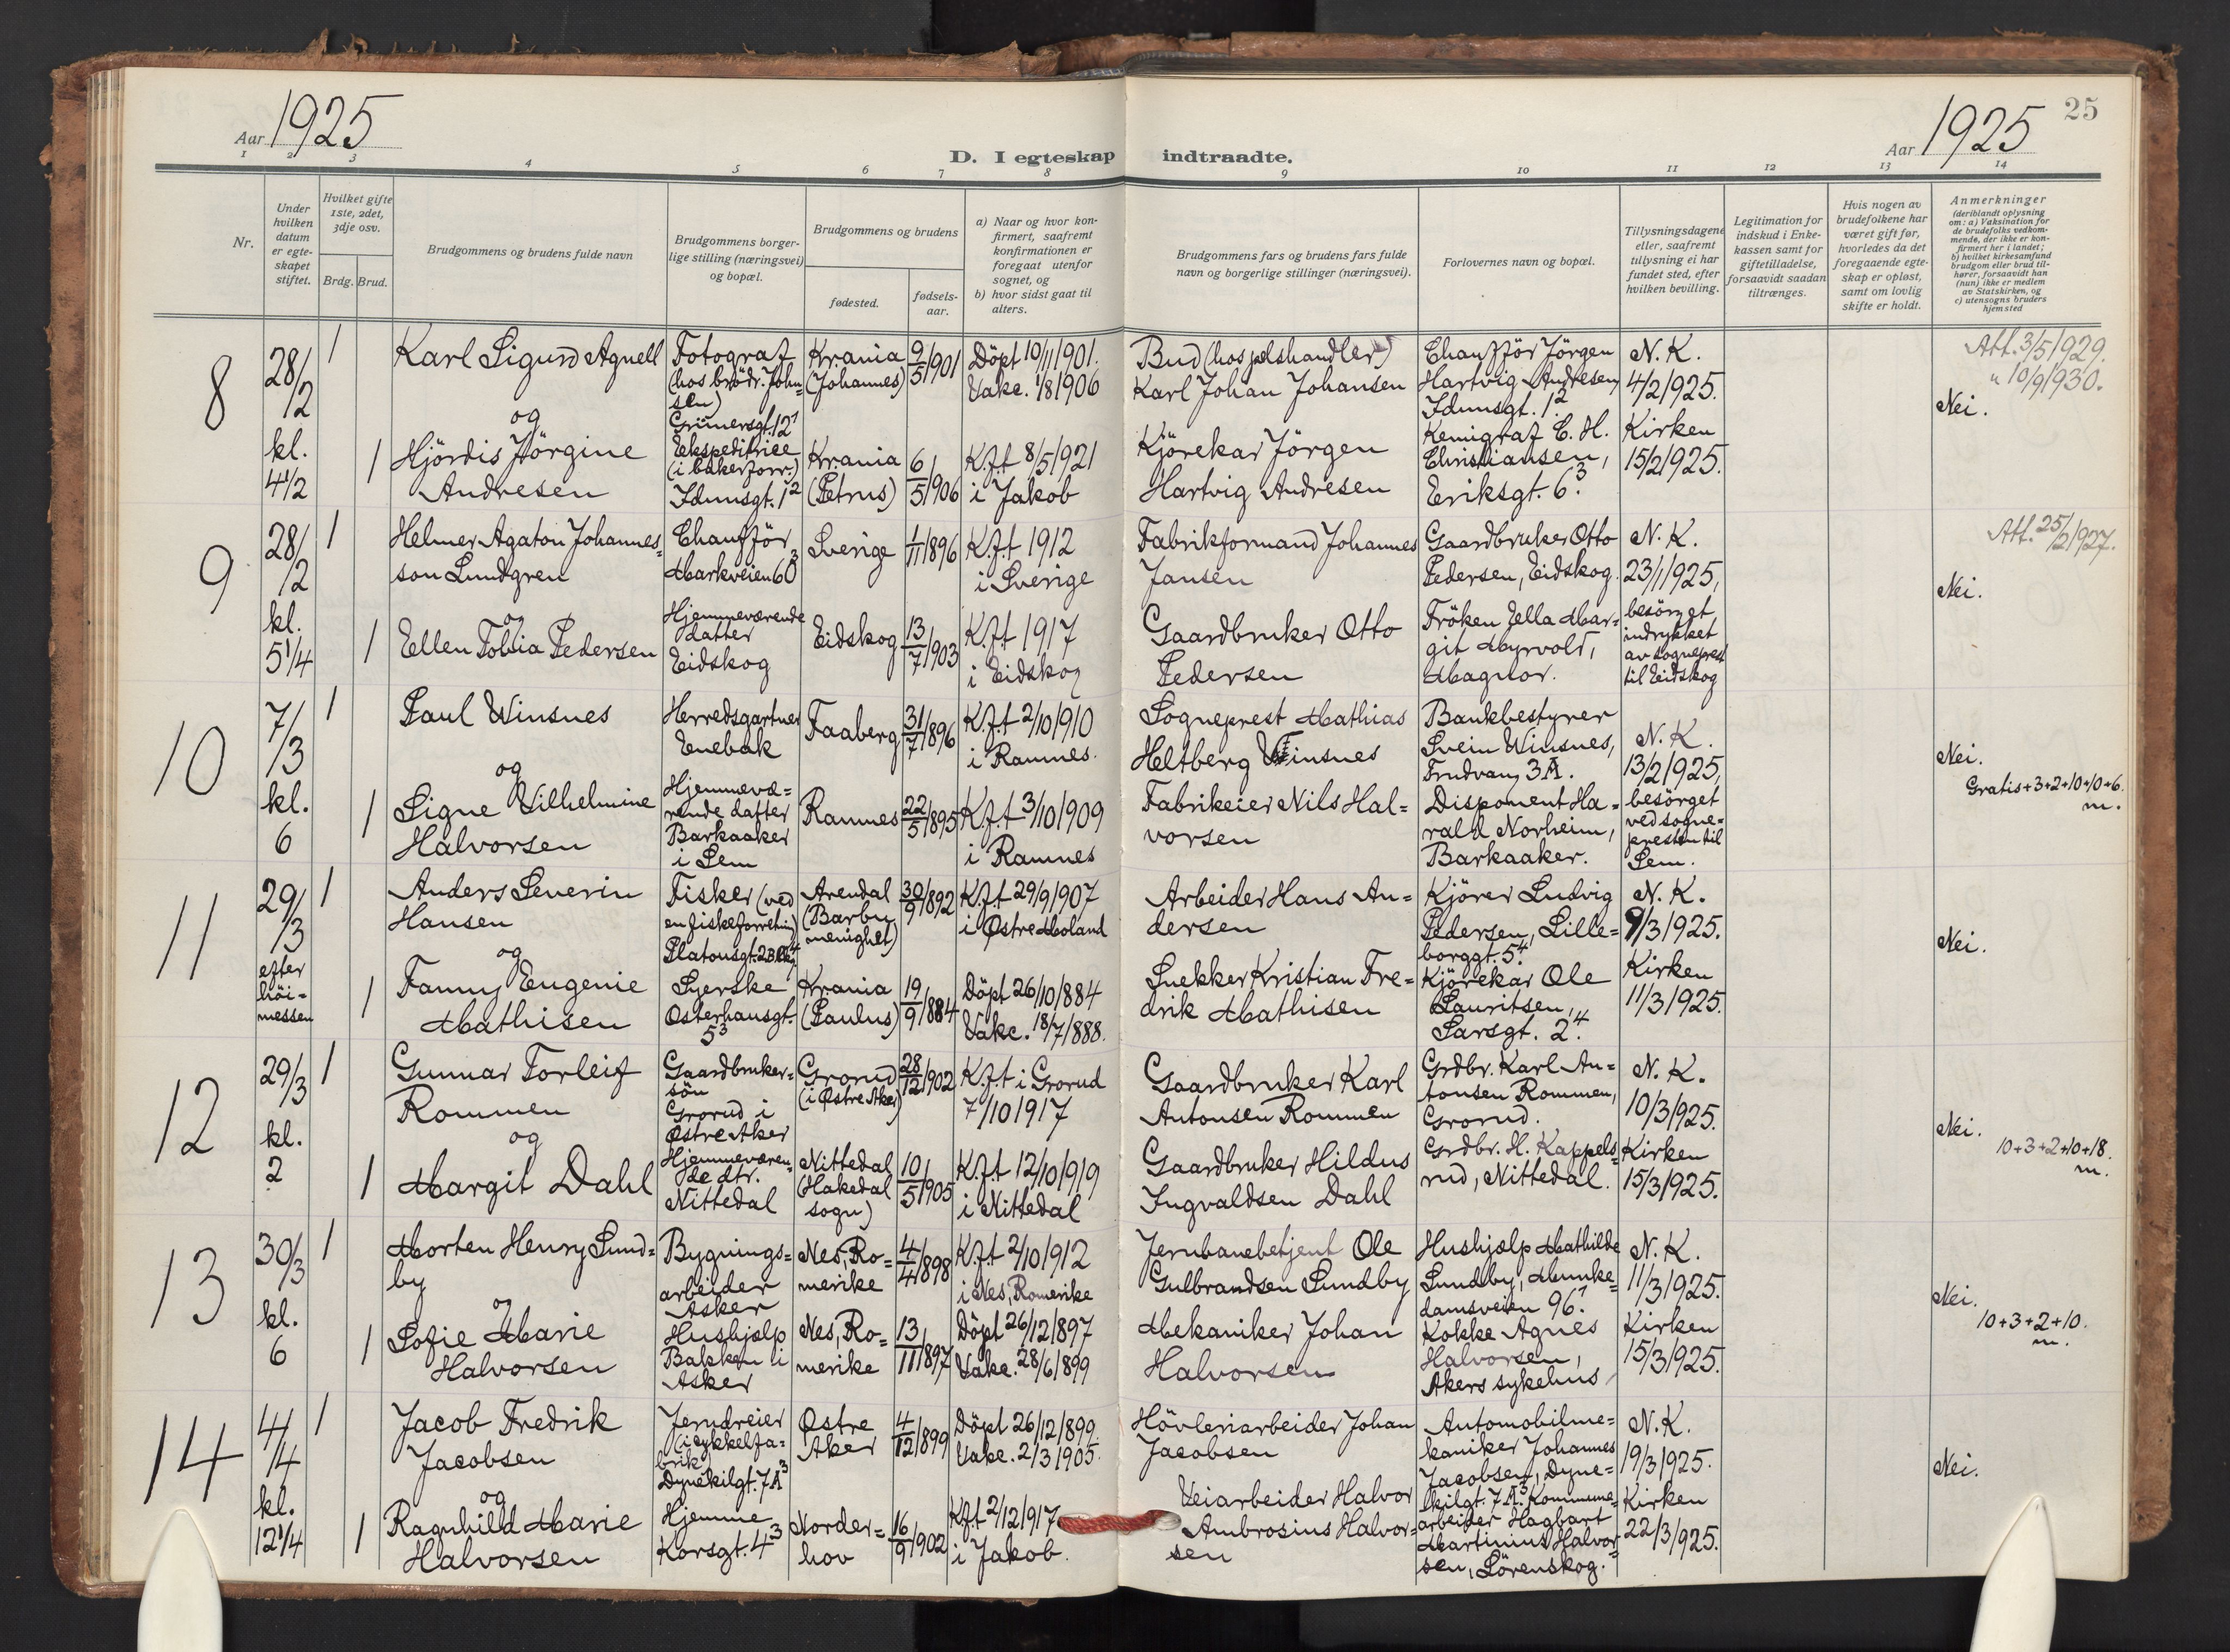 25
Aar 1925
Aar 1925
D. I egteskap indtraadte.
1 2 3 4 5 6 7 8 9 10 11 12 13 14
Nr.
Under
hvilken
datum
er egte-
skapet
stiftet.
Hvilket gifte
1ste, 2det,
3dje osv.
Brdg. Brud.
Brudgommens og brudens fulde navn
Brudgommens borger-
lige stilling (næringsvei)
og bopæl.
Brudgommens og brudens
fødested.
fødsels-
aar.
a) Naar og hvor kon-
firmert, saafremt
konfirmationen er
foregaat utenfor
sognet, og
b) hvor sidst gaat til
alters.
Brudgommens fars og brudens fars fulde
navn og borgerlige stillinger (næringsvei).
Forlovernes navn og bopæl.
Tillysningsdagene
eller, saafremt
tillysning ei har
fundet sted, efter
hvilken bevilling.
Legitimation for
indskud i Enke-
kassen samt for
giftetilladelse,
forsaavidt saadan
tiltrænges.
Hvis nogen av
brudefolkene har
været gift før,
hvorledes da det
foregaaende egte-
skap er opløst,
samt om lovlig
skifte er holdt.
Anmerkninger
(deriblandt oplysning
om: a) Vaksination for
de brudefolks vedkom-
mende, der ikke er kon-
firmert her i landet;
b) hvilket kirkesamfund
brudgom eller brud til-
hører, forsaavidt han
(hun) ikke er medlem
av Statskirken, og
c) utensogns bruders
hjemsted
8
28/2
kl.
4 1/2
1
Karl Sigurd Agnell
Fotograf
(hos brödr. John=
sen)
Grünersgt. 12¹
Krania
(Johannes)
9/5 1901
Döpt 10/11 1901.
Vakc. 1/8 1906
Bud (hos pelshandler)
Karl Johan Johansen
Chauffför Jörgen
Hartvig Andresen,
Idunsgt. 1²
N. K.
4/2 1925.
Att. 3/5 1929.
" 10/9 1930.
Nei.
og
1
Hjördis Jörgine
Andresen
Ekspeditrice
(i bakerforr.)
Idunsgt. 1²
Krania
(Petrus)
6/5 1906
K.f.t 8/5 1921
i Jakob
Kjörekar Jörgen
Hartvig Andresen
Kemigraf C. H.
Christiansen,
Eriksgt. 6³.
Kirken
15/2 1925.
9
28/2
kl.
5 1/4
1
Helmer Agaton Johannes=
son Lundgren
Chaufför
Markveien 60³
Sverige
1/11 1896
K.f.t 1912
i Sverige
Fabrikformand Johannes
Jansen
Gaardbruker Otto
Pedersen, Eidskog.
N. K.
23/1 1925,
Att. 25/2 1927.
Nei.
og
1
Ellen Tobia Pedersen
Hjemmeværende
datter
Eidskog
Eidskog
13/7 1903
K.f.t 1917
i Eidskog
Gaardbruker Otto
Pedersen
Fröken Jella Mar=
git Myrvold,
Magnor.
besörget
indrykket
av sogneprest
til Eidskog
10
7/3
kl.
6
1
Paul Winsnes
Herredsgartner
Enebak
Faaberg
31/7 1896
K.f.t 2/10 1910
i Ramnes.
Sogneprest Mathias
Heltberg Winsnes
Bankbestyrer
Svein Winsnes,
Frudvang 3A.
N. K.
13/2 1925,
Nei.
Gratis+3+2+10+10+6.
m.
og
1
Signe Vilhelmine
Halvorsen
Hjemmevæ=
rende datter
Barkaaker
i Sem
Ramnes
22/5 1895
K.f.t 3/10 1909
i Ramnes
Fabrikeier Nils Hal=
vorsen
Disponent Ha=
rald Norheim,
Barkaaker.
besörget
ved sogne=
presten til
Sem.
11
29/3
efter
höi=
messen
1
Anders Severin
Hansen
Fisker (ved
en fiskeforretning)
Platousgt.
Arendal
(Barbu
menighet)
30/9 1892
K.f.t 29/9 1907
i Østre Moland
Arbeider Hans An=
dersen
Kjörer Ludvig
Pedersen, Lille=
borggt. 5⁴.
N. K.
9/3 1925.
Nei.
og
1
Fanny Eugenie
Mathisen
Syerske
Osterhausgt.
5³
Krania
(Paulus)
19/9 1884
Döpt 26/10 1884
Vakc. 18/7 1888.
Snekker Kristian Fre=
drik Mathisen
Kjörekar Ole
Lauritsen,
Sarsgt. 2⁴.
Kirken
11/3 1925.
12
29/3
kl.
2
1
Gunnar Torleif
Rommen
Gaardbruker=
sön
Grorud i
Østre Aker
Grorud
(i Østre Aker)
28/12 1902
K.f.t i Grorud
7/10 1917
Gaardbruker Karl
Antonsen Rommen
Grdbr. Karl An=
tonsen Rommen,
Grorud.
N. K.
10/3 1925.
Nei.
10+3+2+10+18.
m.
og
1
Margit Dahl
Hjemmeværen=
de dtr.
Nittedal
Nittedal
(Hakedal
sogn)
10/5 1905
K.f.t 12/10 1919
i Nittedal
Gaardbruker Hildus
Ingvaldsen Dahl
Grdbr. H. Kappels=
rud, Nittedal.
Kirken
15/3 1925.
13
30/3
kl.
6
1
Morten Henry Lund=
by
Bygnings=
arbeider
Asker
Nes, Ro=
merike
4/4 1898
K.f.t 2/10 1912
i Nes, Romerike
Jernbanebetjent Ole
Gulbrandsen Lundby
Hushjælp Mathilde
Lundby, Munke=
damsveien 96¹.
N. K.
11/3 1925.
Nei.
10+3+2+10.
m.
og
1
Sofie Marie
Halvorsen
Hushjælp
Bakken i
Asker
Nes, Ro=
merike
13/11 1897
Döpt 26/12 1897
Vakc. 28/6 1899
Mekaniker Johan
Halvorsen
Kokke Agnes
Halvorsen,
Akers sykehus
Kirken
15/3 1925.
14
4/4
kl.
12 1/4
1
Jacob Fredrik
Jacobsen
Jerndreier
(i cykkelfa=
brik)
Dynekilgt. 7A³
Østre
Aker
4/12 1899
Döpt 26/12 1899.
Vakc. 2/3 1905.
Hövleriarbeider Johan
Jacobsen
Automobilme=
kaniker Johannes
Jacobsen, Dyne=
kilgt. 7A³. Kommune=
N. K.
19/3 1925.
Nei.
og
1
Ragnhild Marie
Halvorsen
Hjemme
Korsgt. 4³
Norder=
hov
16/9 1902
K.f.t 2/12 1917
i Jakob.
Veiarbeider Halvor
Ambrosius Halvor=
sen
arbeider Hagbart
Martinius Halvor=
sen, Lörenskog.
Kirken
22/3 1925.